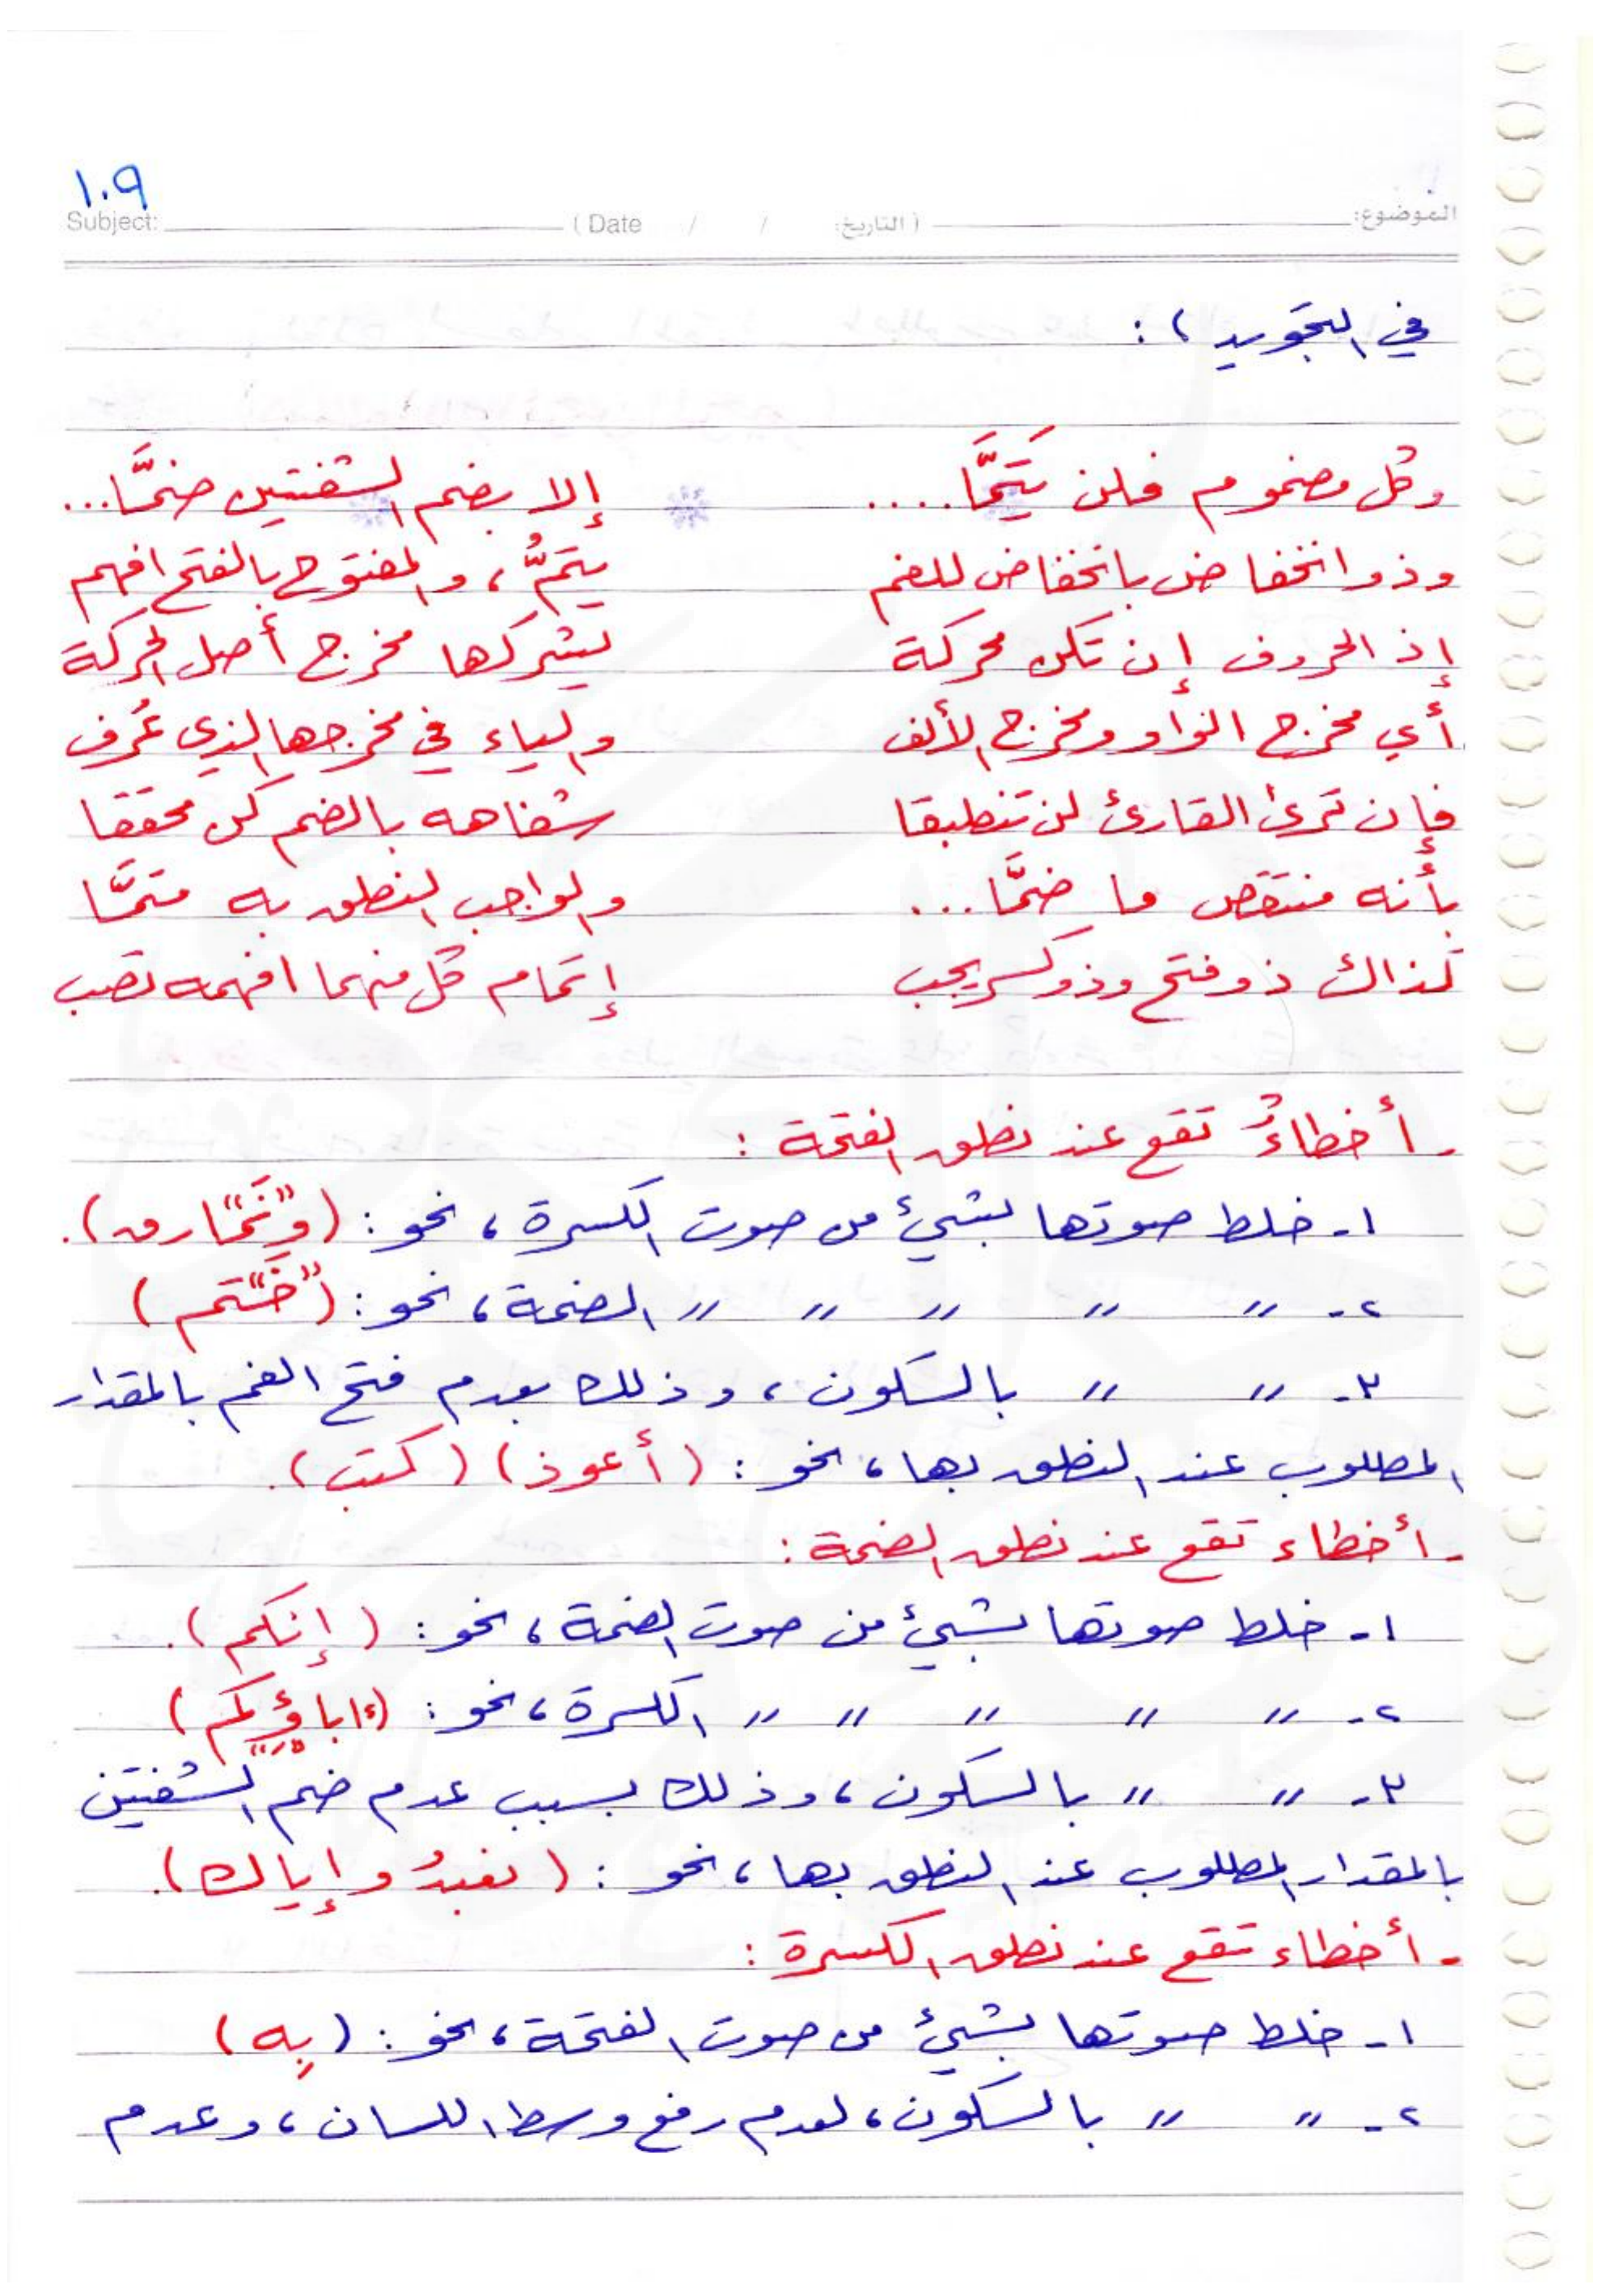 ١٠٩
الموضوع: (التاريخ: / / Date) Subject:
في التجويد ) :
وكل مضموم فلن يَتِمَّا ..... إلا بضم الشفتين ضمَّا...
وذو انخفاض بانخفاض للفم يتمُّ ، والمفتوح بالفتح افهم
إذ الحروف إن تكن محركة يشركها مخرج أصل الحركة
أي مخرج الواو ومخرج الألف والياء في مخرجها الذي عُرف
فإن ترى القارئ لن تنطبقا شفاهه بالضم كن محققا
بأنه منتقص ما ضمَّا ... والواجب النطق به متمَّا
كذاك ذو فتح وذو كسر يجب إتمام كل منهما افهمه تصب
- أخطاءٌ تقع عند نطق الفتحة :
١- خلط صوتها بشيئ من صوت الكسرة ، نحو : (وَنَمَارق).
٢- " " " " " الضمة ، نحو : (خَتم)
٣- " " بالسكون ، وذلك بعدم فتح الفم بالمقدار
المطلوب عند النطق بها ، نحو : (أعوذ) (كتب).
- أخطاء تقع عند نطق الضمة :
١- خلط صوتها بشيئ من صوت الضمة ، نحو : (إنكم).
٢- " " " " " الكسرة ، نحو : (ءاباؤكم)
٣- " " بالسكون ، وذلك بسبب عدم ضم الشفتين
بالمقدار المطلوب عند النطق بها ، نحو : (نعبدُ وإياك).
- أخطاء تقع عند نطق الكسرة :
١- خلط صوتها بشيئ من صوت الفتحة ، نحو : (بِه)
٢- " " بالسكون ، لعدم رفع وسط اللسان ، وعدم